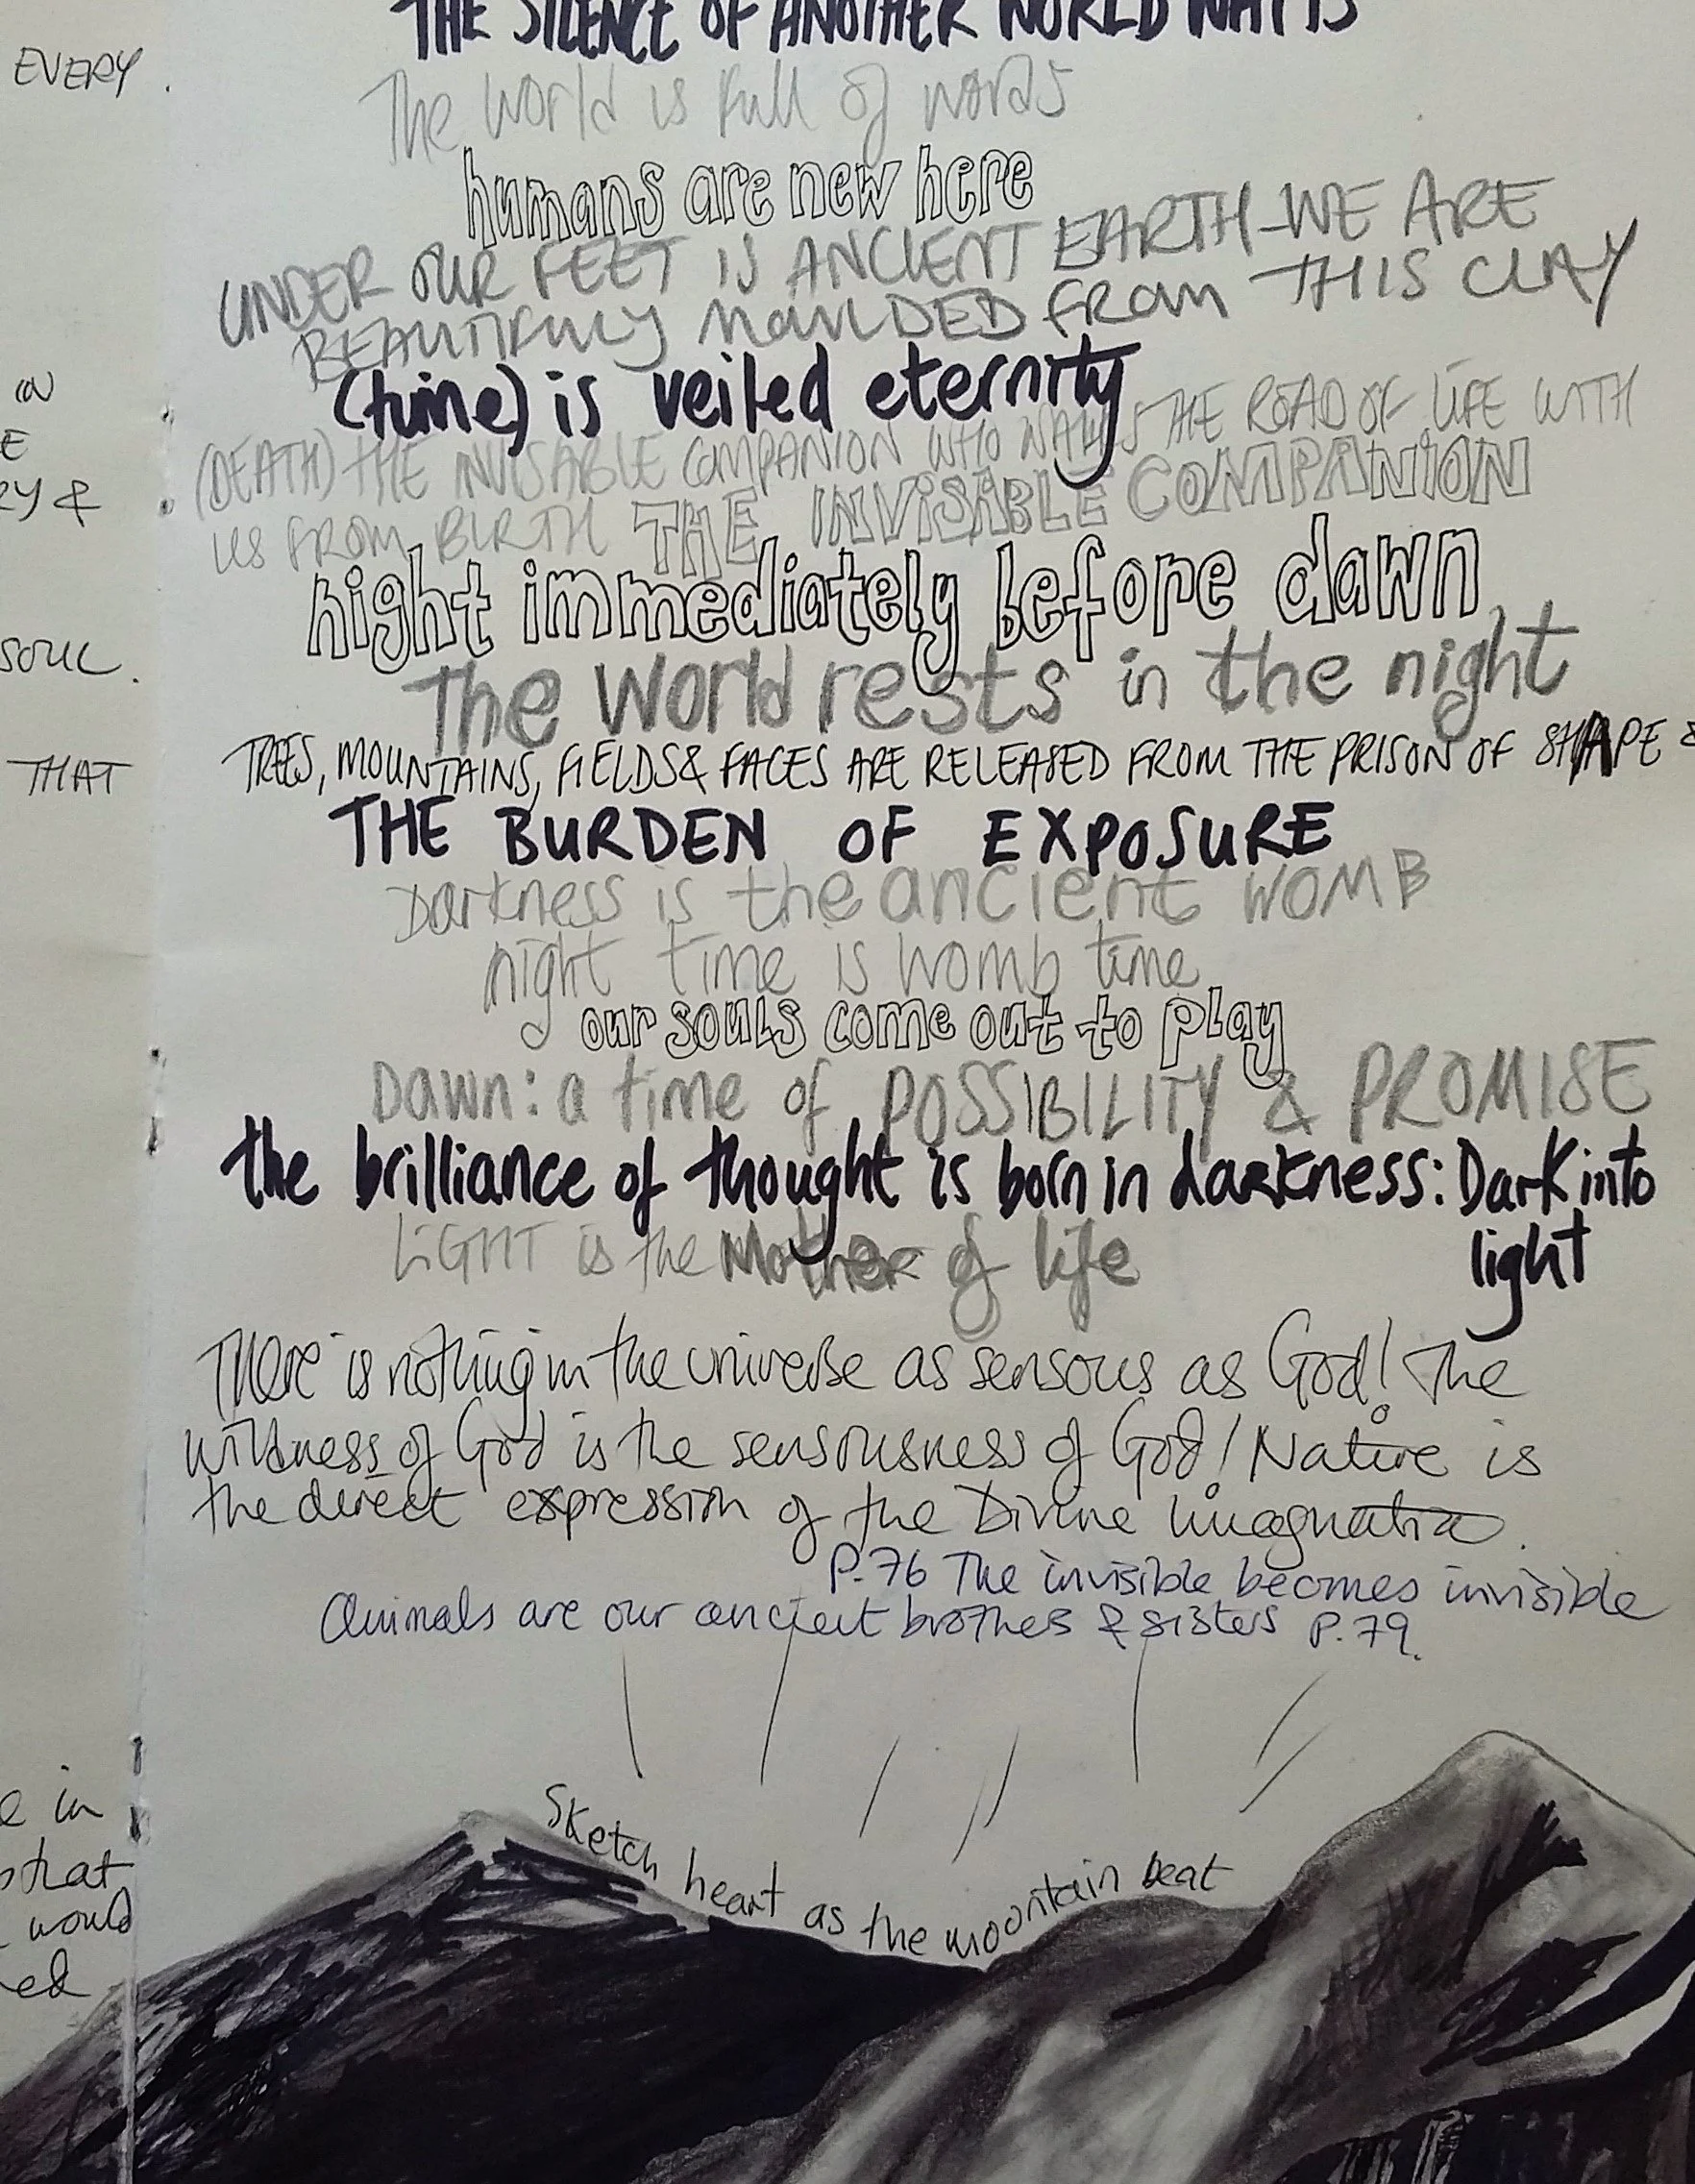 EVERY.
IN
E
RY &
SOUL.
THAT
e in
that
would
ed
THE SILENCE OF ANOTHER WORLD WAITS
The world is full of words
humans are new here
UNDER OUR FEET IS ANCIENT EARTH - WE ARE
BEAUTIFULLY MOULDED FROM THIS CLAY
(time) is veiled eternity
(DEATH) THE INVISABLE COMPANION WHO WALKS THE ROAD OF LIFE WITH
US FROM BIRTH THE INVISABLE COMPANION
night immediately before dawn
The world rests in the night
TREES, MOUNTAINS, FIELDS & FACES ARE RELEASED FROM THE PRISON OF SHAPE &
THE BURDEN OF EXPOSURE
Darkness is the ancient WOMB
night time is womb time
our souls come out to play
DAWN: a time of POSSIBILITY & PROMISE
the brilliance of thought is born in darkness: Dark into
light
LIGHT is the Mother of life
There is nothing in the universe as sensous as God! The
wildness of God is the sensousness of God! Nature is
the direct expression of the Divine Imagination.
P.76 The invisible becomes invisible
Animals are our ancient brothers & sisters P.79.
Sketch heart as the mountain beat